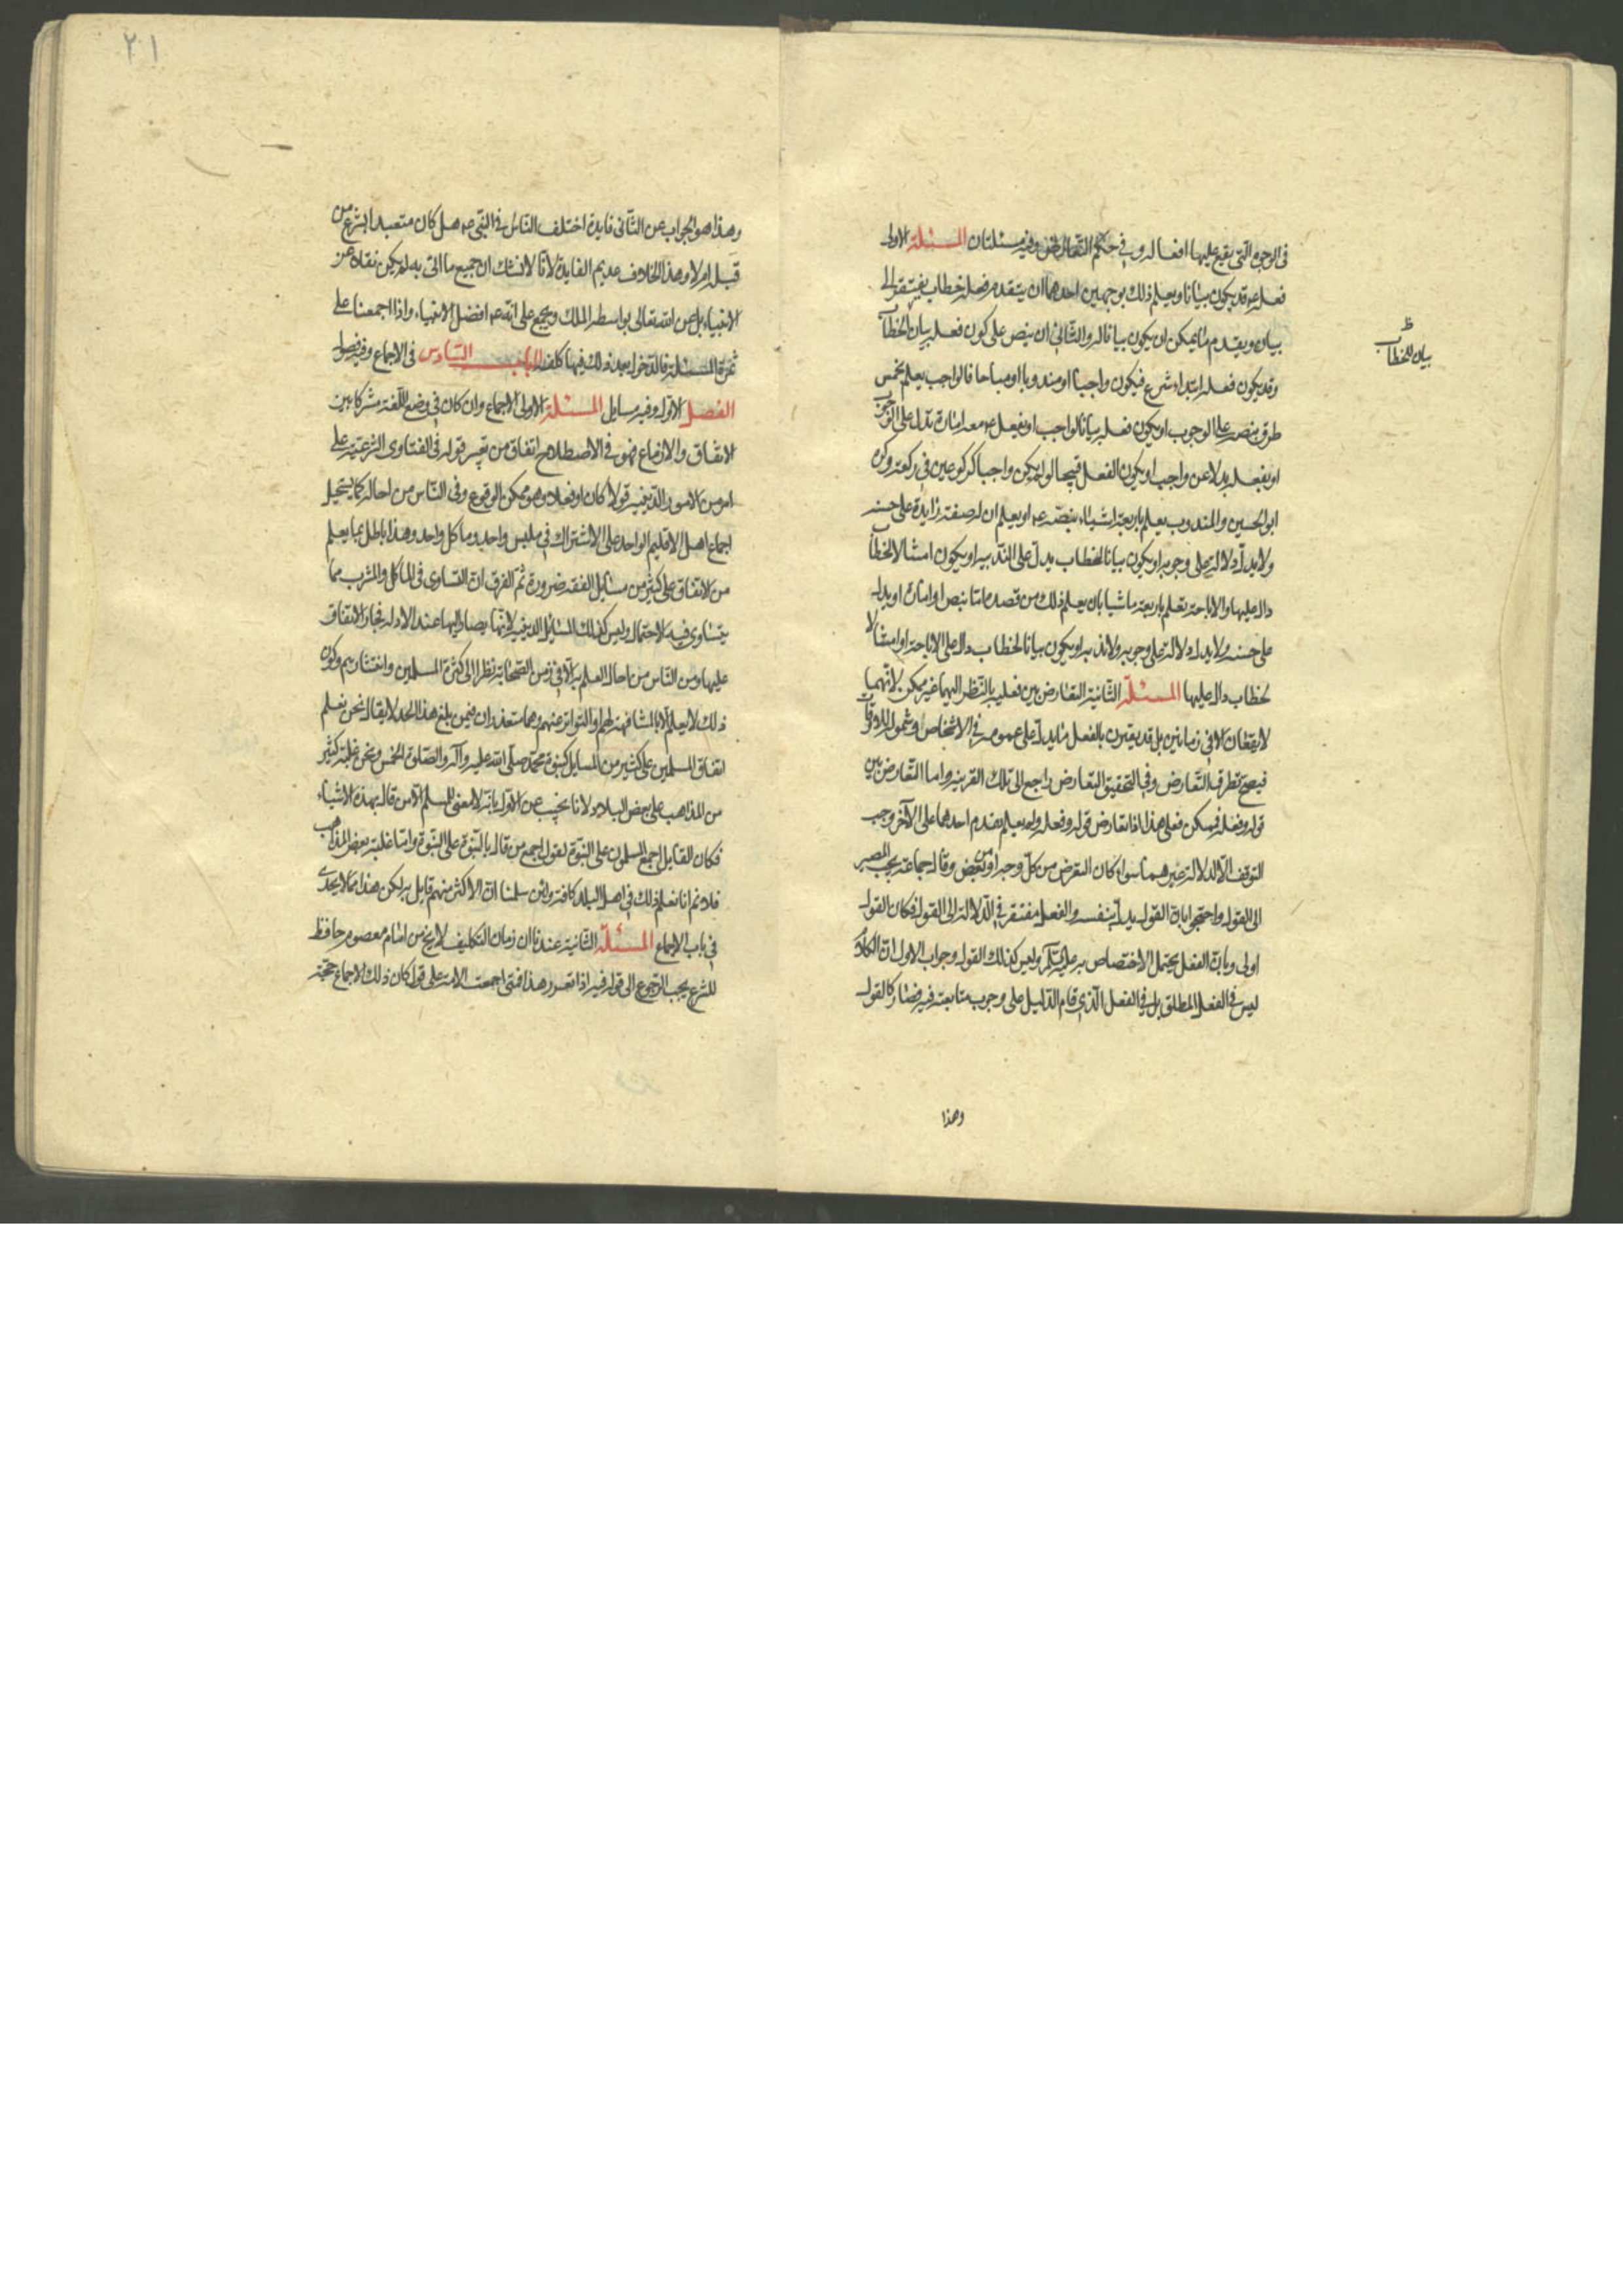 في الوجوه التي يقع عليها افعاله وفي حكم التعارض وفيه مسئلتان المسئلة الاولى
فعله عه قد يكون بيانا ويعلم ذلك بوجهين احدهما ان يتقدم فعله خطاب يفتقر الى
بيان ويقدم ما يمكن ان يكون بيانا له والثاني ان ينص على كون فعله بيان الخطاب
وقد يكون فعله ابتداء شرع فيكون واجبا او مندوبا او مباحا فالواجب يعلم بخمس
طرق بنصه على الوجوب او يكون فعله بيانا لواجب او يفعله عه معه امارة تدل على الوجوب
او يفعله بدلا عن واجب او يكون الفعل قبيحا لو لم يكن واجبا كركوعين في ركعة وكره
ابو الحسين والمندوب يعلم باربعة اشياء بنصه عه او يعلم ان له صفة زايدة على حسنه
ولا يدل دلالة على وجوبه او يكون بيانا لخطاب يدل على الندبية او يكون امتثالا لخطاب
دال عليها والاباحة تعلم باربعة اشيا بان يعلم ذلك من قصده اما بنص او امارة او يدل
على حسنه ولا يدل دلالة على وجوبه ولا ندبه او يكون بيانا لخطاب دال على الاباحة او امتثالا
لخطاب دال عليها المسئلة الثانية التعارض بين فعليه بالنظر اليهما غير ممكن لانهما
لا يقعان الا في زمانين بل قد يقترن بالفعل ما يدل على عمومه في الاشخاص وشموله للاوقات
فيصح تطرق التعارض وفي التحقيق التعارض راجع الى تلك القرينة واما التعارض بين
قوله وفعله فممكن فعلى هذا اذا تعارض قوله وفعله ولم يعلم تقدم احدهما على الآخر وجب
التوقف الا لدلالة غيرهما سواء كان التعرض من كل وجه او من بعض وقال جماعة يجب المصير
الى القول واحتجوا بان القول يدل بنفسه والفعل مفتقر في الدلالة الى القول فكان القول
اولى وبان الفعل يحتمل الاختصاص به عليه السلم وليس كذلك القول وجواب الاول ان الكلام
ليس في الفعل المطلق بل في الفعل الذي قام الدليل على وجوب متابعته فيه فصار كالقول
وهذا
ظ
بيان للخطاب
٢١
وهذا هو الجواب عن الثاني فايدة اختلف الناس في النبي عه هل كان متعبدا بشرع من
قبله ام لا وهذا الخلاف عديم الفايدة لانا لا نشك ان جميع ما اتى به لم يكن نقلا عن
الانبياء بل عن الله تعالى بواسطة الملك ويجمع على انه عه افضل الانبياء واذا اجمعنا على
ثمرة المسئلة فالدخول بعد ذلك فيها كلفة الباب السادس في الاجماع وفيه فصول
الفصل الاول وفيه مسايل المسئلة الاولى الاجماع وان كان في وضع اللغة مشركا بين
الاتفاق والازماع فهو في الاصطلاح اتفاق من يعتبر قوله في الفتاوى الشرعية على
امر من الامور الدينية قولا كان او فعلا وهو ممكن الوقوع وفي الناس من احاله كما يستحيل
اجماع اهل الاقليم الواحد على الاشتراك في ملبس واحد وماكل واحد وهذا باطل بما يعلم
من الاتفاق على كثير من مسايل الفقه ضرورة ثم الفرق ان التساوى في الماكل والمشرب مما
يتساوى فيه الاحتمال وليس كذلك المسايل الدينية لانها يصار اليها عند الادلة فجاز الاتفاق
عليها ومن الناس من احال العلم به الا في زمن الصحابة نظرا الى كثرة المسلمين وانتشارهم وكون
ذلك لا يعلم الا بالمشافهة لهم او التواتر عنهم وهما متعذران فيمن بلغ هذا الحد لا يقال نحن نعلم
اتفاق المسلمين على كثير من المسايل كنبوة محمد صلى الله عليه وآله والصلوة الخمس ونحن غلبة كثير
من المذاهب على بعض البلاد لانا نجيب عن الاول بانه لا معنى للمسلم الا من قال بهذه الاشياء
فكان القايل اجمع المسلمون على النبوة كقول اجمع من قال بالنبوة على النبوة واما غلبة بعض المذاهب
فلا نم انا نعلم ذلك في اهل البلد كافة ولئن سلمنا ان الاكثر منهم قايل به لكن هذا مما لا يجدى
في باب الاجماع المسئلة الثانية عندنا ان زمان التكليف لا يخ من امام معصوم حافظ
للشرع يجب الرجوع الى قوله فيه اذا تقرر هذا فمتى اجمعت الامة على قول كان ذلك الاجماع حجة